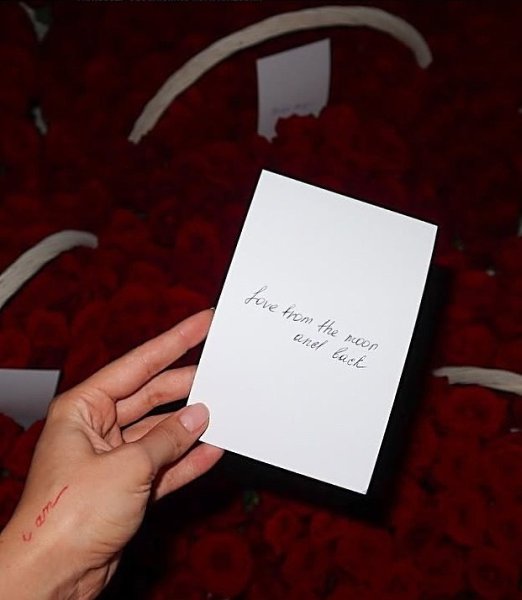 Love from the moon
and back
i am